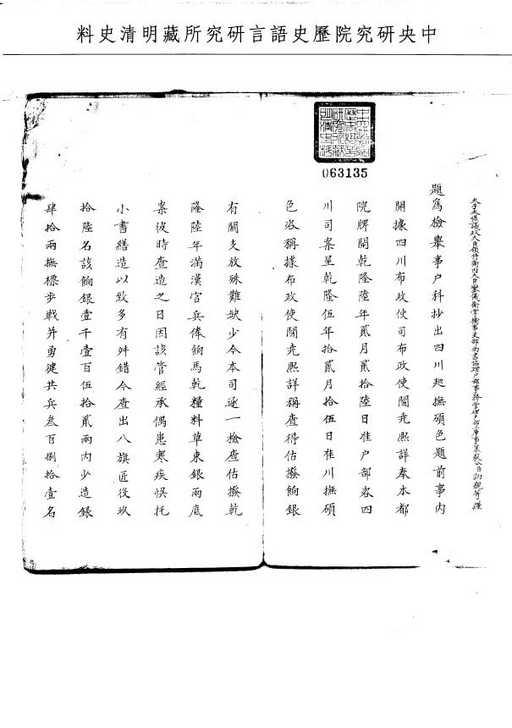 中央研究院歷史語言研究所藏明清史料
063135
題為檢舉事戶科抄出四川廵撫碩色題前事內
開據四川布政使司布政使閆堯熙詳奉本都
院牌開乾隆陸年貳月貳拾陸日准戶部咨四
川司案呈乾隆伍年拾貳月拾伍日准川撫碩
色咨稱據布政使閆堯熙詳稱查得估撥餉銀
有關支放殊難缺少今本司逐一檢查估撥乾
隆陸年滿漢官兵俸餉馬乾糧料草束銀兩底
案彼時查造之日因該管經承偶患寒疾悞托
小書繕造以致多有舛錯今查出八旗匠役玖
拾陸名該餉銀壹千壹百伍拾貳兩內少造銀
肆拾兩撫標步戰并勇健共兵叁百捌拾壹名